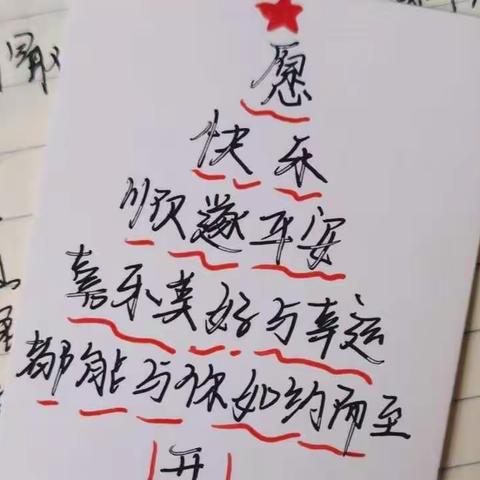 愿
快乐
顺遂平安
喜乐美好与幸运
都能与你如约而至
开